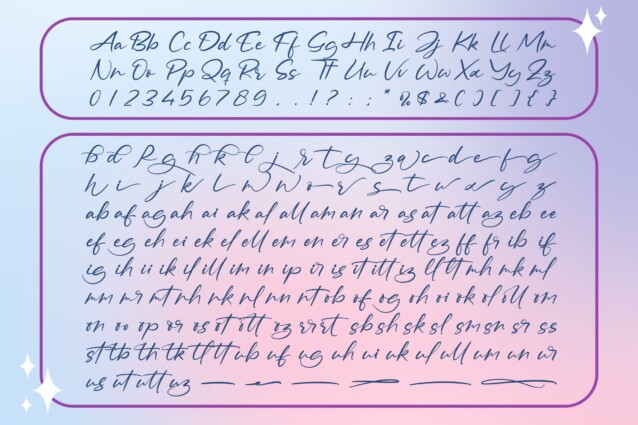 Aa Bb Cc Dd Ee Ff Gg Hh Ii Jj Kk Ll Mm
Nn Oo Pp Qq Rr Ss Tt Uu Vv Ww Xx Yy Zz
0 1 2 3 4 5 6 7 8 9 . , ! ? : ; * % $ & ( ) [ ] { }
b d f g h k l j r t y z a c d e f g
h i j k l m n o r s t u v x y z
ab af ag ah ai ak al all am an ar as at att az eb ee
ef eg eh ei ek el ell em en er es et ett ez ff fr ib if
ig ih ii ik il ill im in ip ir is it itt iz ll lt mh mk ml
mm mr mt nh nk nl nn nt ob of og oh oi ok ol oll om
on oo op or os ot ott oz err rt sb sh sk sl sm sn sr ss
st tb th tk tl tt ub uf ug uh ui uk ul ull um un ur
us ut utt uz